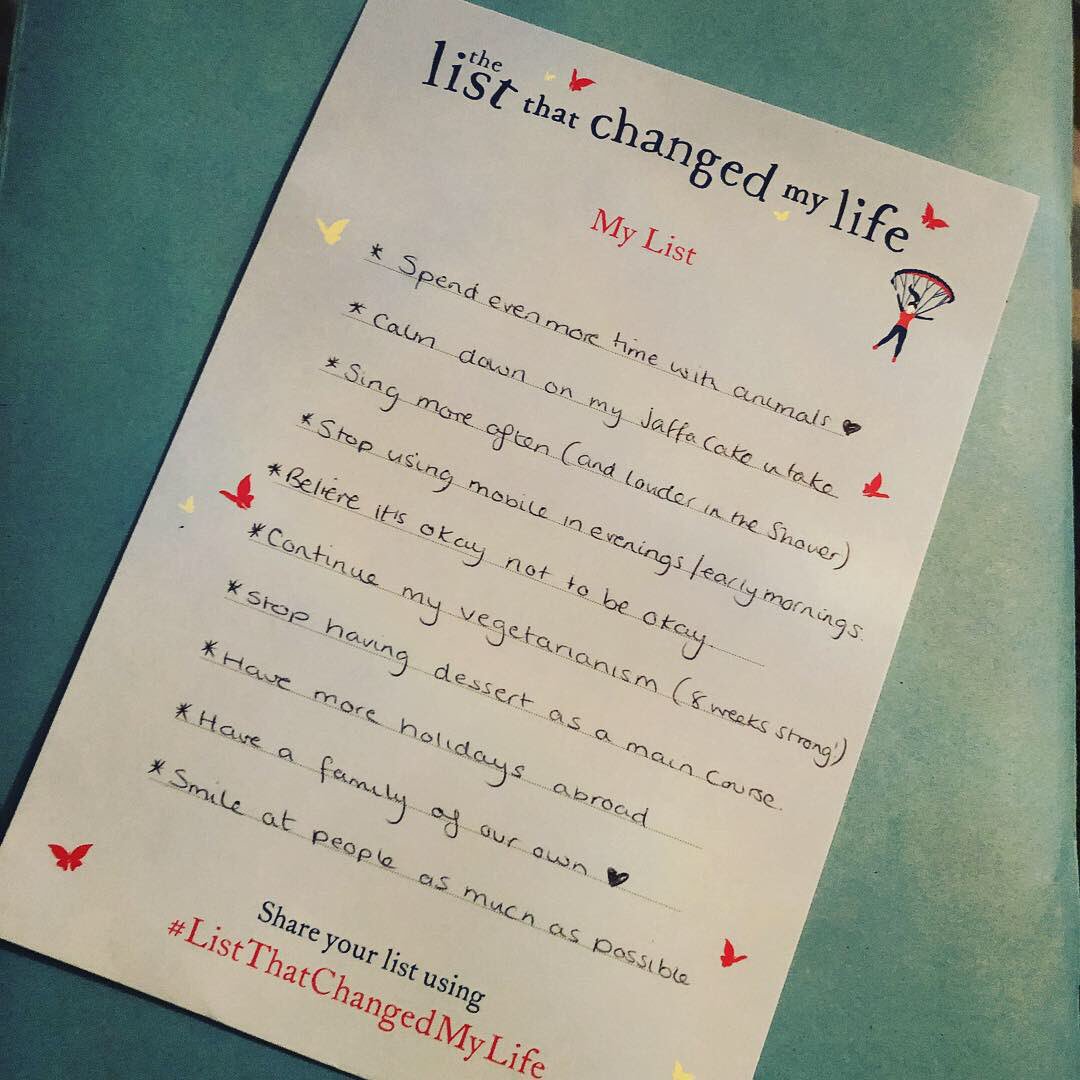 the
list that changed my life
My List
* Spend even more time with animals ♥
* Calm down on my jaffa cake intake
* Sing more often (and louder in the shower)
* Stop using mobile in evenings/early mornings.
* Believe it's okay not to be okay
* Continue my vegetarianism (8 weeks strong!)
* Stop having dessert as a main course.
* Have more holidays abroad
* Have a family of our own ♥
* Smile at people as much as possible
Share your list using
#ListThatChangedMyLife